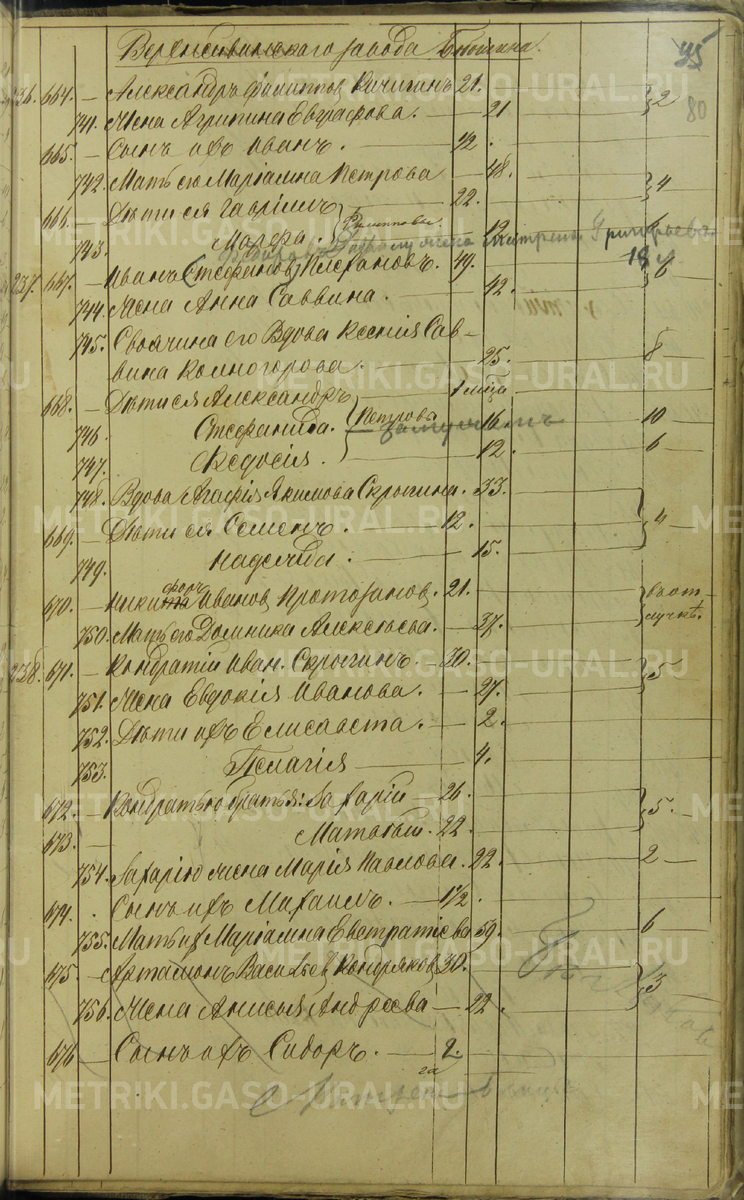 Верхсывинскаго завода
95
80
236. 664. — Александръ Филиппов Кичигинъ 21. 2
741. Жена Агрипина Евграфова. — 21
665. — Сынъ ихъ Иванъ. — 1/2
742. Мать его Маріамна Петрова — 48. 4
666. — Дѣти ея Гавріилъ 22.
743. Мавра. Филипповы 19 6
Гаврилу жена Григорьева 18
237. 667. — Иванъ Стефановъ 49. 6
744. Жена Анна Саввина. — 42.
745. Своячина его Вдова Ксенія Сав-
вина Колногорова. — 25. 8
668. — Дѣти ея Александръ — 1 мѣца
746. Стефанида. Петровы 16 10
замужемъ
747. Ѳедосія. — 12. 6
748. Вдова Агафія Акимова Скрыгина. 33.
669. — Дѣти ея Семенъ. — 12. 4
749. Надежда. — 15.
670. — Никифоръ Иванов Протозанов, 21. в от-
750. Мать его Домника Алексѣева. — 37. лучкѣ.
238. 671. — Кондратій Иван. Скрыгинъ. — 30. 5
751. Жена Евдокія Иванова. — 27.
752. Дѣти ихъ Елисавета. — 2.
753. Пелагія — 4.
672. — Кондратью братья: Захарій — 26. 5.
673. — Матвѣй. 22.
754. Захарію жена Марія Павлова. 22. 2
674. Сынъ ихъ Михаилъ. — 1 1/2.
755. Мать их Маріамна Евстратіева 59. 6
675. — Артамонъ Васильев Кондряков 30. 3
756. Жена Анисья Андреева — 22.
676 — Сынъ ихъ Сидоръ. — 2.
METRIKI.GASO-URAL.RU